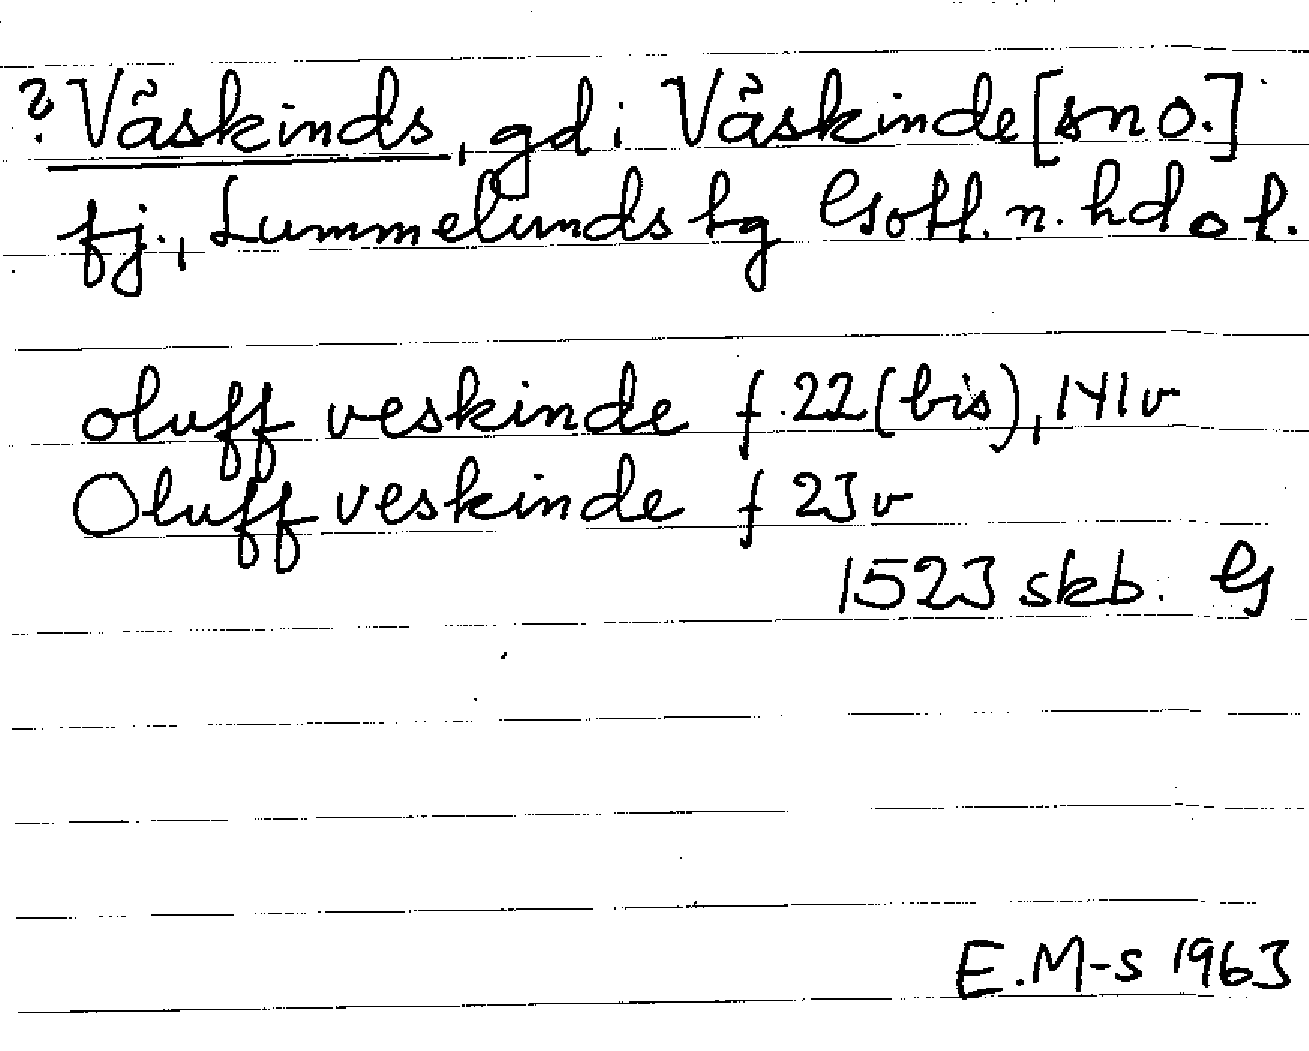 ? Väskinds, gd i Väskinde [sn o.]
fj., Lummelunds tg Gotl. n. hd o l.
oluff veskinde f. 22 (bis), 141v
Oluff veskinde f 23v
1523 skb. G
E.M-s 1963